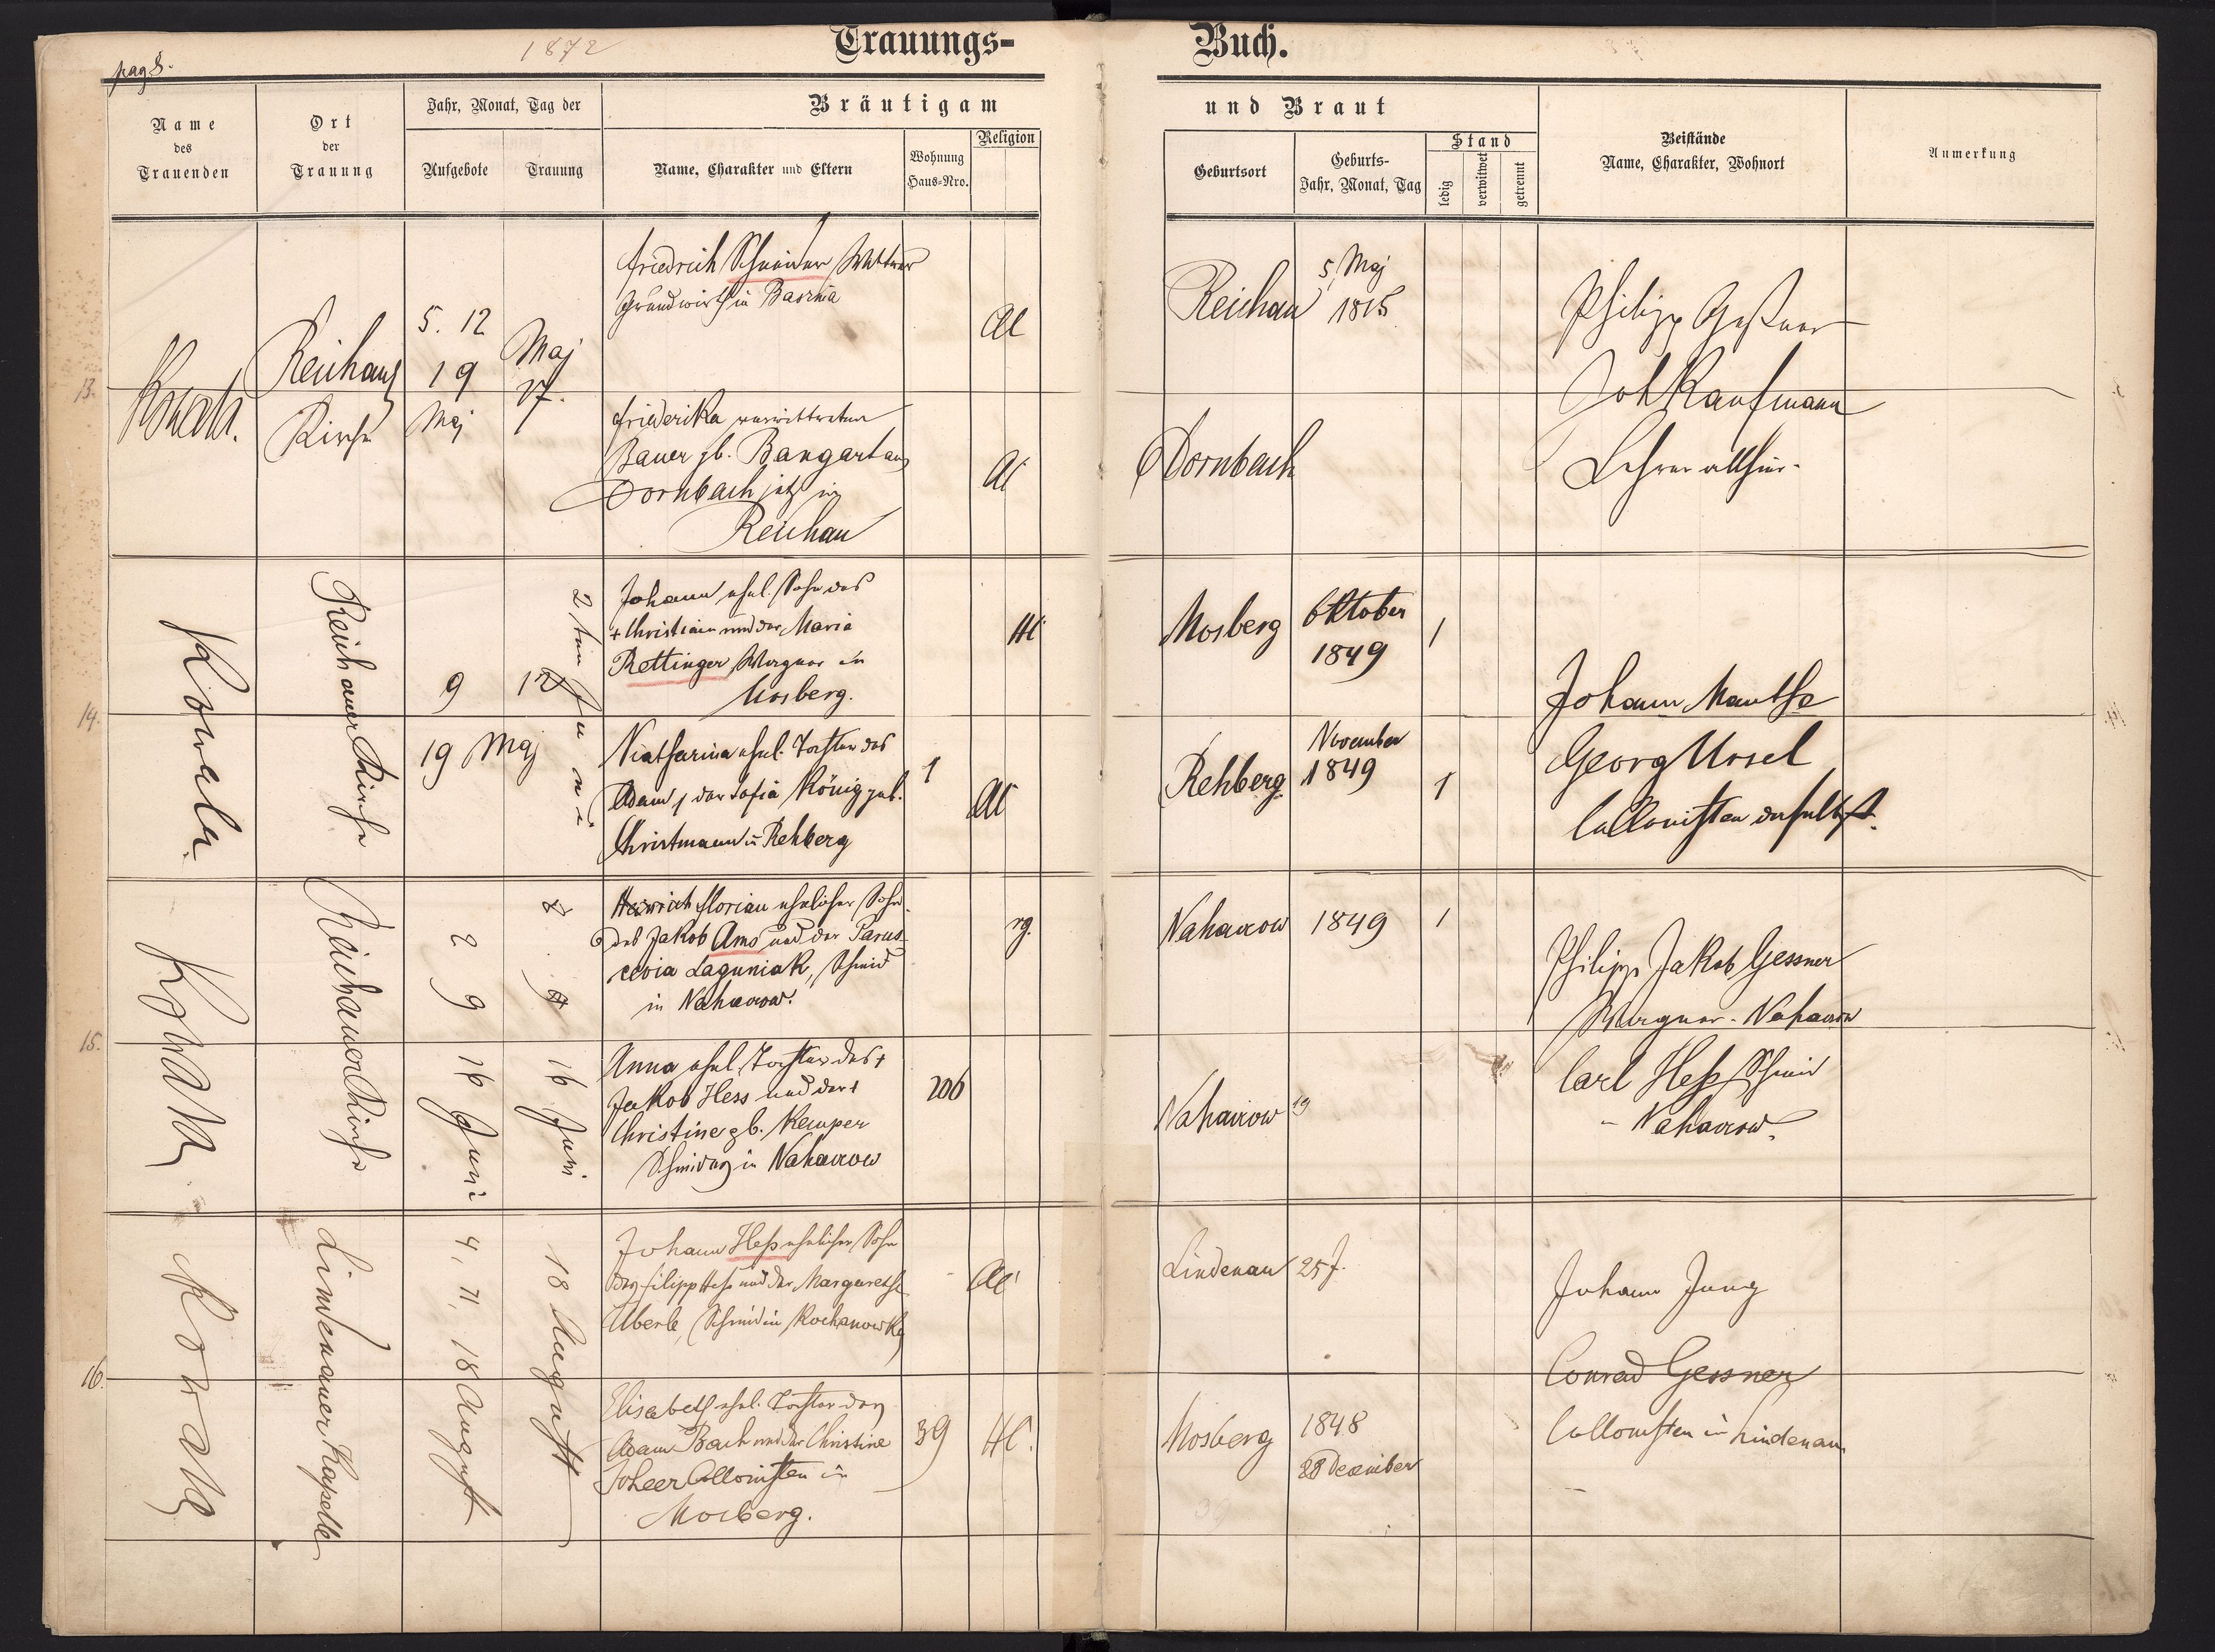 pag 8.
1872
Trauungs-
Buch.
Name
des
Trauenden
Ort
der
Trauung
Jahr, Monat, Tag der
Aufgebote
Trauung
Bräutigam
Name, Charakter und Eltern
Wohnung
Haus-Nro.
Religion
und Braut
Geburtsort
Geburts-
Jahr, Monat, Tag
Stand
ledig
verwitwet
getrennt
Beistände
Name, Charakter, Wohnort
Anmerkung
13.
Reichau
Kirche
5. 12
19
Maj
Maj
27.
Friedrich Wittwer
Grundwirth in Basznia
AC
Friederika verwittwete
Bauer gb. Bangert aus
Dornbach jetzt in
Reichau
AC
Reichau
5 Maj
1815
Dornbach
Philipp Geßner
Joh Kaufmann
Lehrer allhier.
14.
Reichauer Kirche
9 12
19 Maj
2ten Juni
Johann ehel. Sohn des
+ Christian und der Maria
Rettinger Wagner in
Mosberg.
HC
Katharina ehel. Tochter des
Adam & der Sofia König geb.
Christmann in Rehberg
1
AC
Mosberg
Oktober
1849
1
Rehberg
November
1849
1
Johann Manthe
Georg Mosel
Collonisten daselbst.
15.
Kozak
Reichauer Kirche
2 9 16 Juni
16 Juni
Heinrich Florian ehelicher Sohn
des Jakob Ams und der Paras-
cewia Laguniak, Schmid
in Nahaczow.
rg.
Anna ehel. Tochter des +
Jakob Hess und der +
Christine gb. Kemper
Schmidin in Nahaczow
206
Nahaczow
1849
1
Nahaczow
19
Philipp Jakob Gessner
Wagner - Nahaczow
Carl Heß Schmid
- Nahaczow.
16.
Kozak
Lindenauer Kapelle
4, 11, 18 August
18 August
Johann Heß ehelicher Sohn
des Filipp Heß und der Margarethe
Aberle, Schmid in Kochanowka
AC
Elisabeth ehel. Tochter des
Adam Bach und der Christine
Collonisten in
Mosberg.
39
HC.
Lindenau
25 J.
Mosberg
1848
28 December
Johann Jung
Conrad Gessner
Collonisten in Lindenau